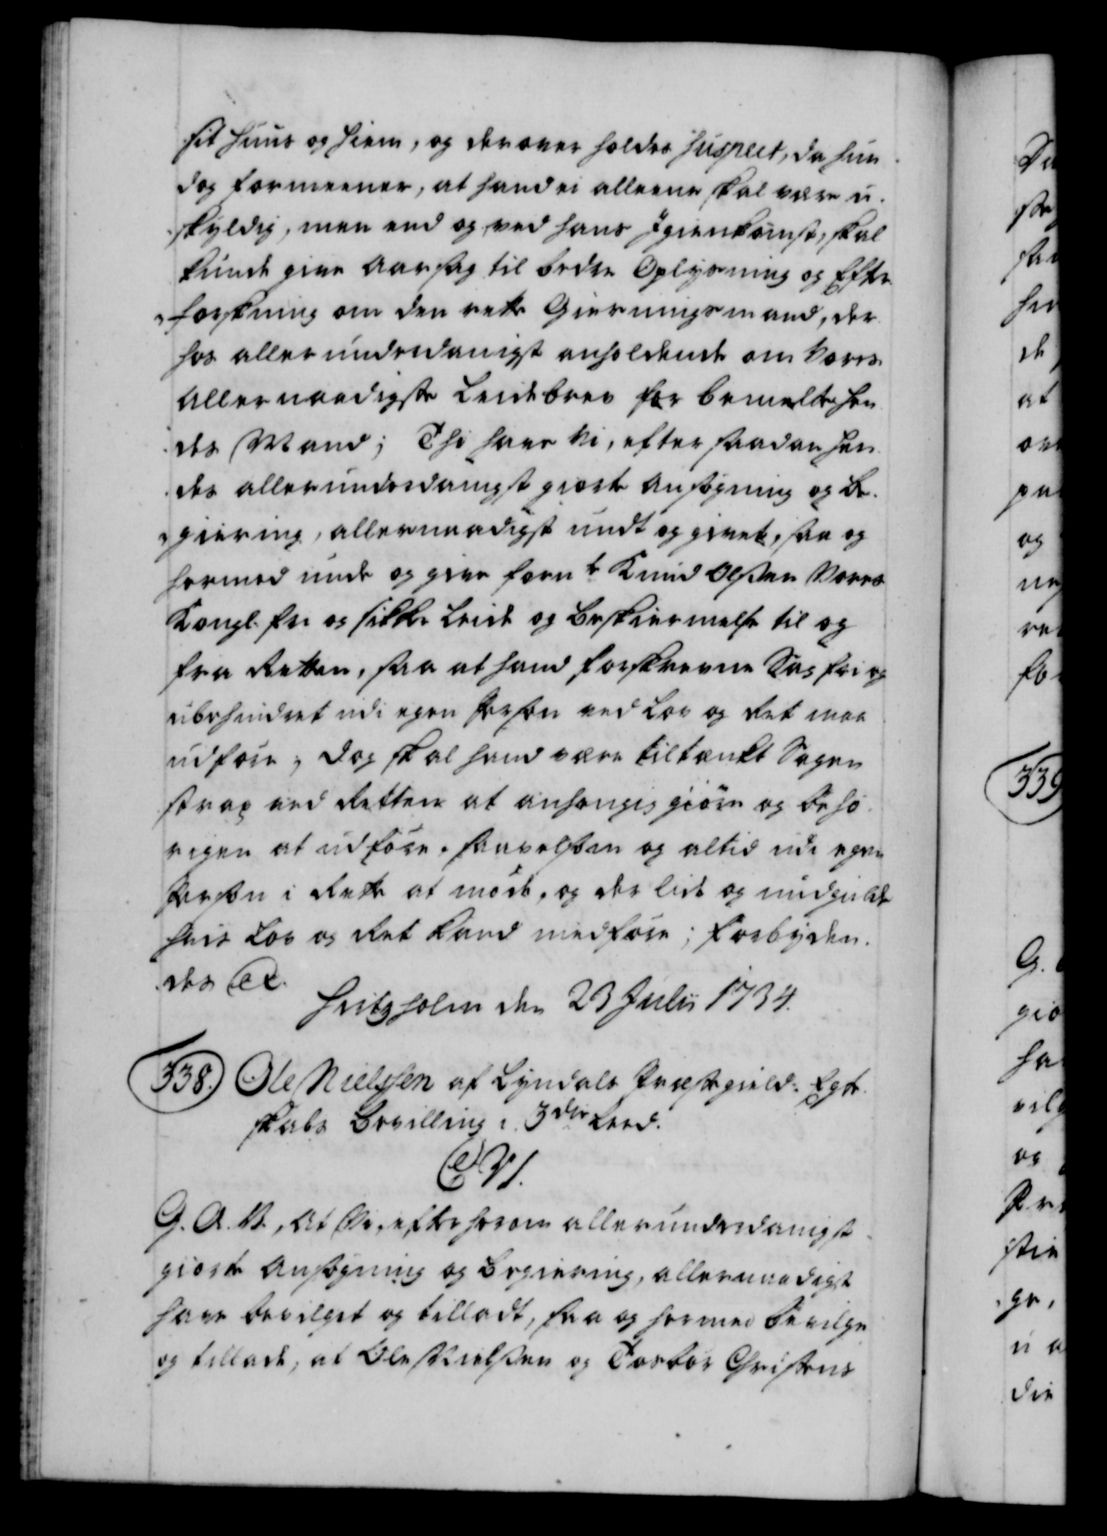 sit Huus og Hiem, og derover holdes suspect, da hun
dog formeener, at hand ei alleene skal være u-
skyldig, men end og ved hans Igienkomst, skal
kunde give Aarsag til bedre Oplysning og Efter-
forskning om den rette Gierningsmand, der-
hos allerunderdanigst anholdende om Vores
Allernaadigste Leidebrev for bemeldte hen-
des Mand; Thi have Vi, efter saadan hen-
des allerunderdanigst giorte Ansøgning og Be-
giering, allernaadigst undt og givet, saa og
hermed unde og give fornte Knud Olssen Vores
Kongl. fri og sikker Leide og Beskiermelse til og
fra Retten, saa at hand forskrevne Sag fri og
ubehindret udi egen Person ved Lov og Ret maa
udføre, dog skal hand være tiltænkt Sagen
strax ved Retten at anhængig giøre og behø-
rigen at udføre, saavelsom og altid udi egen
Person i Rette at møde, og der lide og undgielde
hvis Lov og Ret kand medføre; Forbyden-
des etc.
Fritzholm den 23 Julii 1734.
338. Ole Nielssen af Lyndals Præstegield. Egte-
skabs Bevilling i 3die Leed.
C VI.
G. A. V., At Vi, efter herom allerunderdanigst
giorte Ansøgning og Begiering, allernaadigst
have bevilget og tilladt, saa og hermed bevilge
og tillade, at Ole Nielssen og Torbor Christens